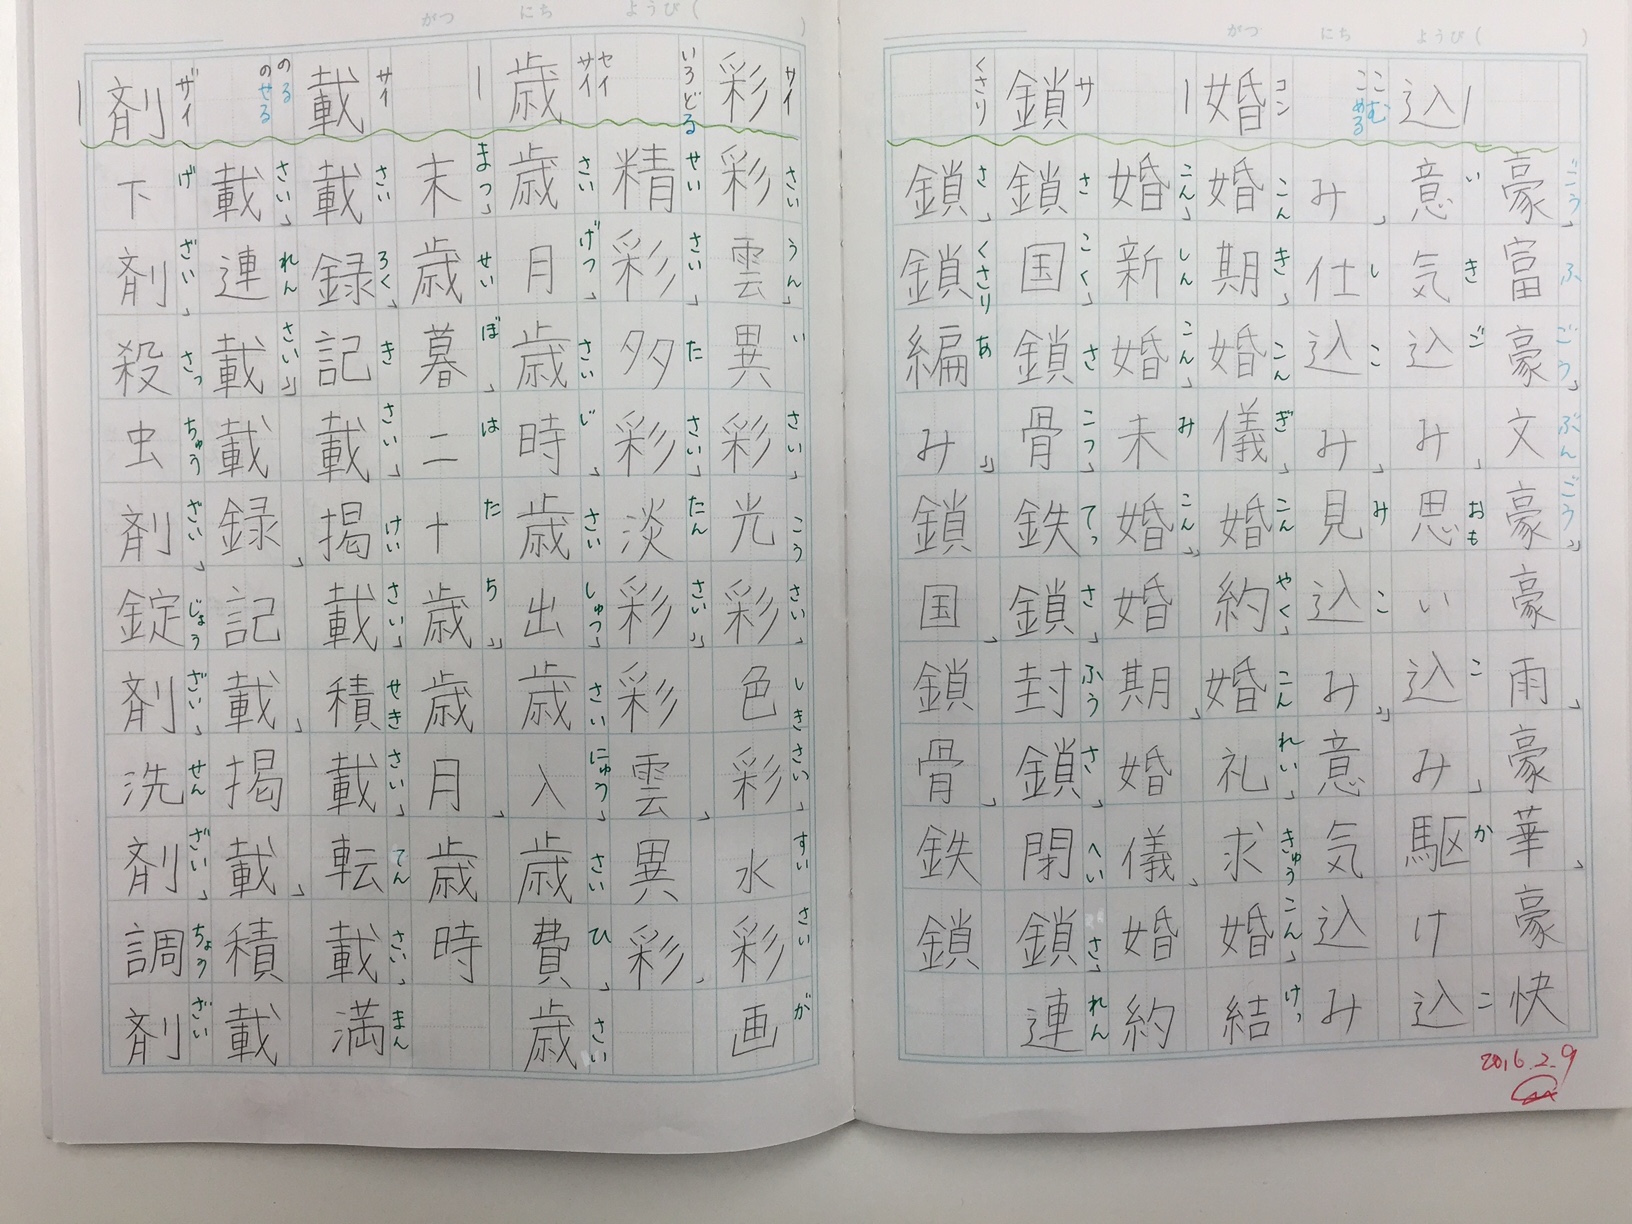 がつ　にち　ようび（　）
豪富豪」文豪」豪雨」豪華」豪快
ごうふごう」ぶんごう」
込
こむ
こめる
意気込み」思い込み」駆け込
いきごおもこかこ
み」仕込み」見込み」意気込み
しこみこ
婚
コン
婚期」婚儀」婚約」婚礼」求婚」結
こんき」こんぎ」こんやく」こんれい」きゅうこん」けっ
婚」新婚」未婚」婚期」婚儀」婚約
こん」しんこん」みこん」
鎖
サ
くさり
鎖国」鎖骨」鉄鎖」封鎖」閉鎖」連
さこく」さこつ」てっさ」ふうさ」へいさ」れん
鎖」鎖編み」鎖国」鎖骨」鉄鎖
さ」くさりあ」
2016.2.9
がつ　にち　ようび（　）
彩
サイ
いろどる
彩雲」異彩」光彩」色彩」水彩画
さいうん」いさい」こうさい」しきさい」すいさいが
精彩」多彩」淡彩」彩雲」異彩」
せいさい」たさい」たんさい」
歳
セイ
サイ
歳月」歳時」歳出」歳入」歳費」歳
さいげつ」さいじ」さいしゅつ」さいにゅう」さいひ」さい
末」歳暮」二十歳」歳月」歳時
まつ」せいぼ」はたち」
載
サイ
のる
のせる
載録」記載」掲載」積載」転載」満
さいろく」きさい」けいさい」せきさい」てんさい」まん
載」連載」載録」記載」掲載」積載
さい」れんさい」
剤
ザイ
下剤」殺虫剤」錠剤」洗剤」調剤
げざい」さっちゅうざい」じょうざい」せんざい」ちょうざい